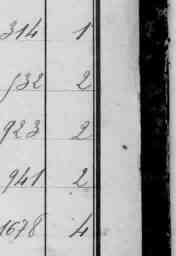 314 1
932 2
923 2
941 2
1678 4